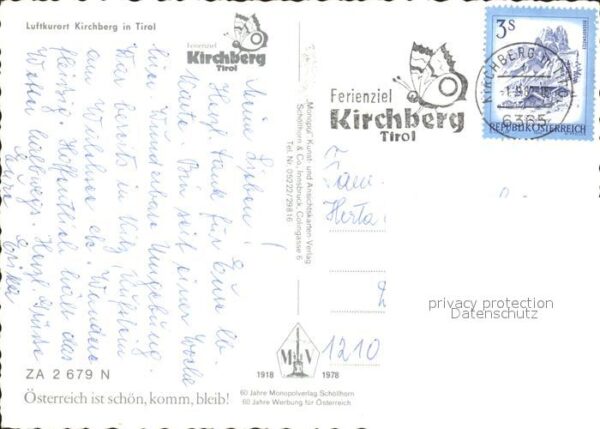 Luftkurort Kirchberg in Tirol
Ferienziel
Kirchberg
Tirol
Meine Lieben!
Herzl. Dank für Eure lb.
Karte. Bin seit einer Woche
hier. Wunderbare Umgebung.
War bereits in Kitz, Kufstein,
am Wildsee etc. Wandere
fleißig. Hoffentlich hält das
Wetter halbwegs. Herzl. Grüße
Eure
Erika
ZA 2 679 N
Österreich ist schön, komm, bleib!
Monopol - Kunst- und Ansichtskarten-Verlag
Schöllhorn & Co., Innsbruck, Colingasse 6
Tel. Nr. 05222/29816
1918 M V 1978
60 Jahre Monopolverlag Schöllhorn
60 Jahre Werbung für Österreich
Ferienziel
Kirchberg
Tirol
3S
KIRCHBERG
6365
REPUBLIK ÖSTERREICH
Fam.
Herta
1210
privacy protection
Datenschutz